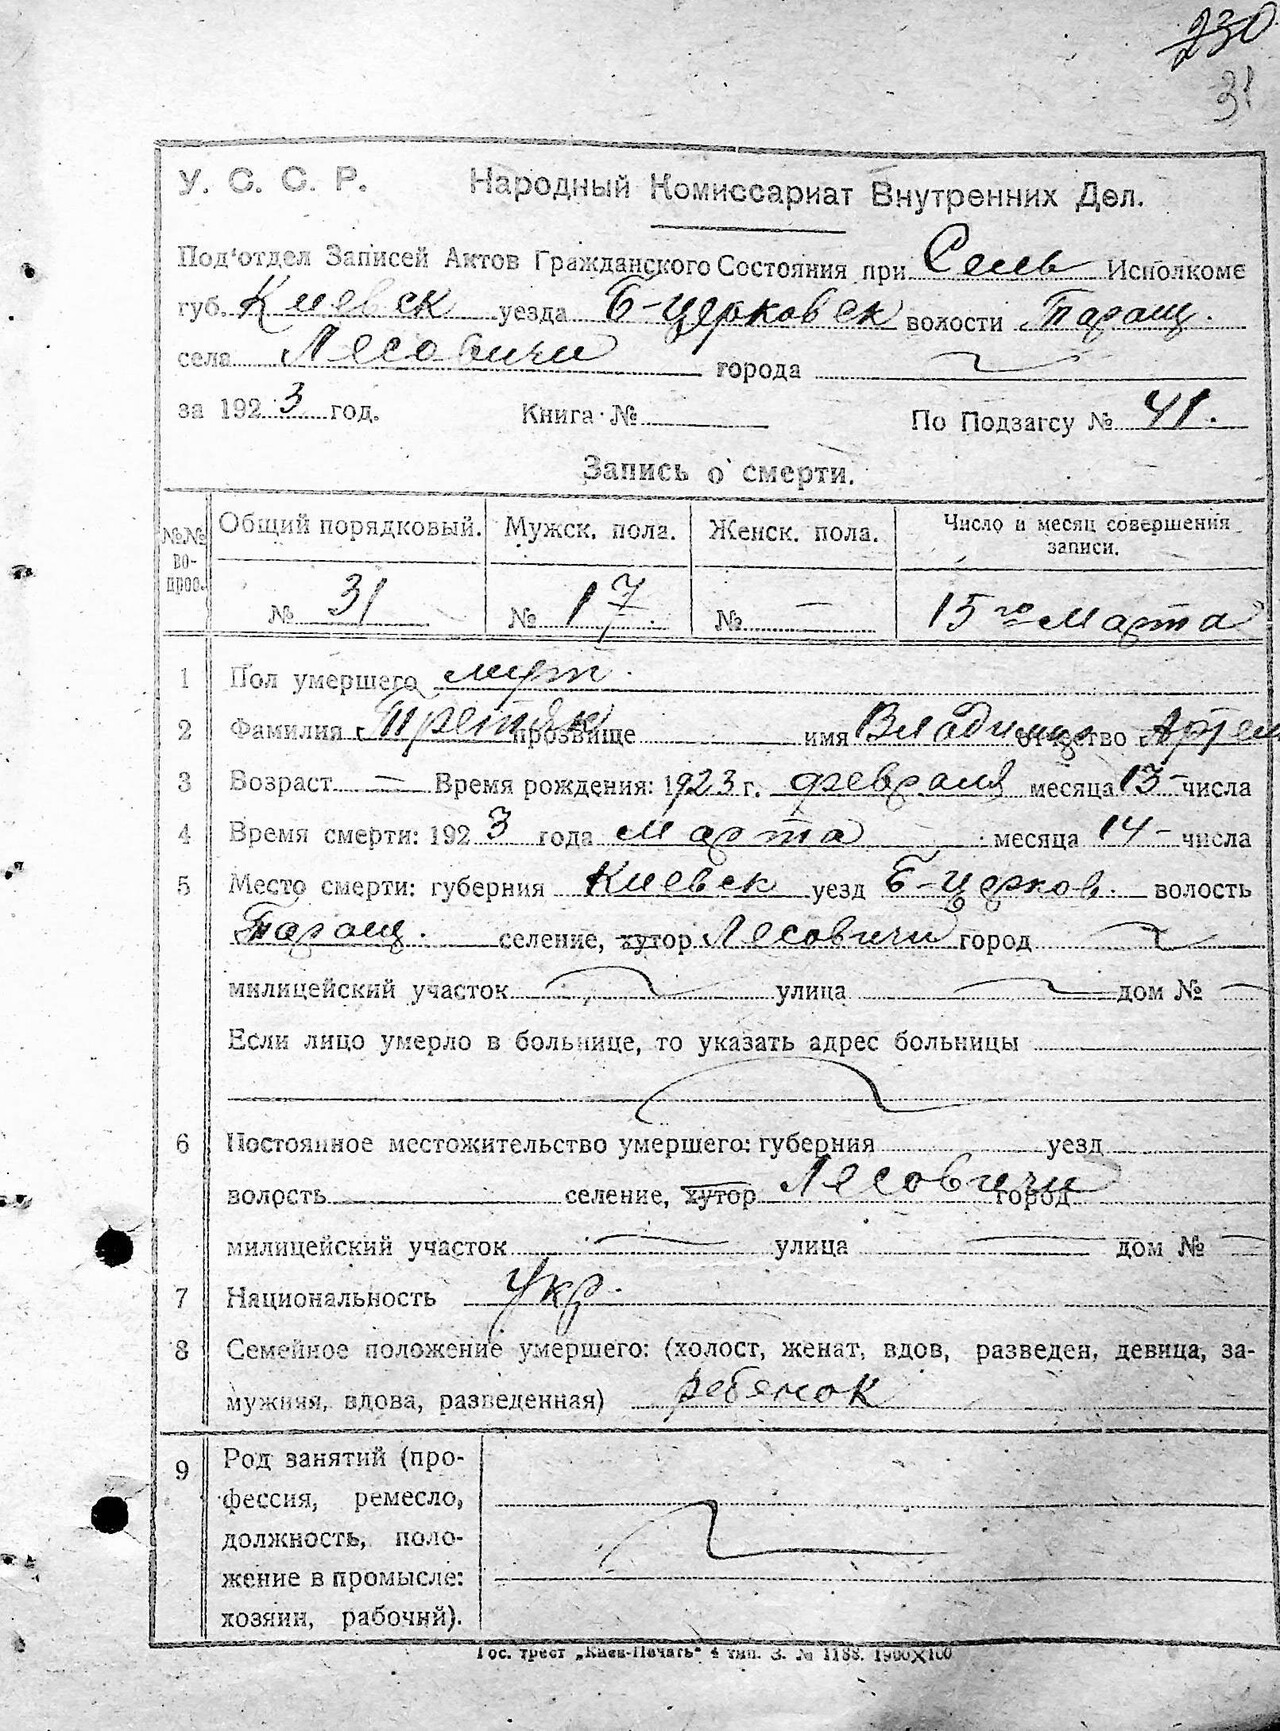 230
31
У. С. С. Р. Народный Комиссариат Внутренних Дел.
Под'отдел Записей Актов Гражданского Состояния при Сель Исполкоме
губ. Киевск уезда Б-церковск волости Таращ.
села Лесовичи города
за 1923 год. Книга № По Подзагсу № 41.
Запись о смерти.
№№ во- прос. Общий порядковый. Мужск. пола. Женск. пола. Число и месяц совершения записи.
№ 31 № 17 № — 15го Марта
1 Пол умершего муж.
2 Фамилия Третяк прозвище имя Владимир отчество Артем
3 Возраст — Время рождения: 1923 г. февраля месяца 13 - числа
4 Время смерти: 1923 года марта месяца 14 - числа
5 Место смерти: губерния Киевск уезд Б-церков. волость
Таращ. селение, хутор Лесовичи город
милицейский участок улица дом № —
Если лицо умерло в больнице, то указать адрес больницы
6 Постоянное местожительство умершего: губерния уезд
волость селение, хутор Лесовичи город
милицейский участок улица дом № —
7 Национальность Укр.
8 Семейное положение умершего: (холост, женат, вдов, разведен, девица, за-
мужняя, вдова, разведенная) ребенок
9 Род занятий (про-
фессия, ремесло,
должность, поло-
жение в промысле:
хозяин, рабочий).
Гос. трест „Киев-Печать" 4 тип. З. № 1188. 1900X100